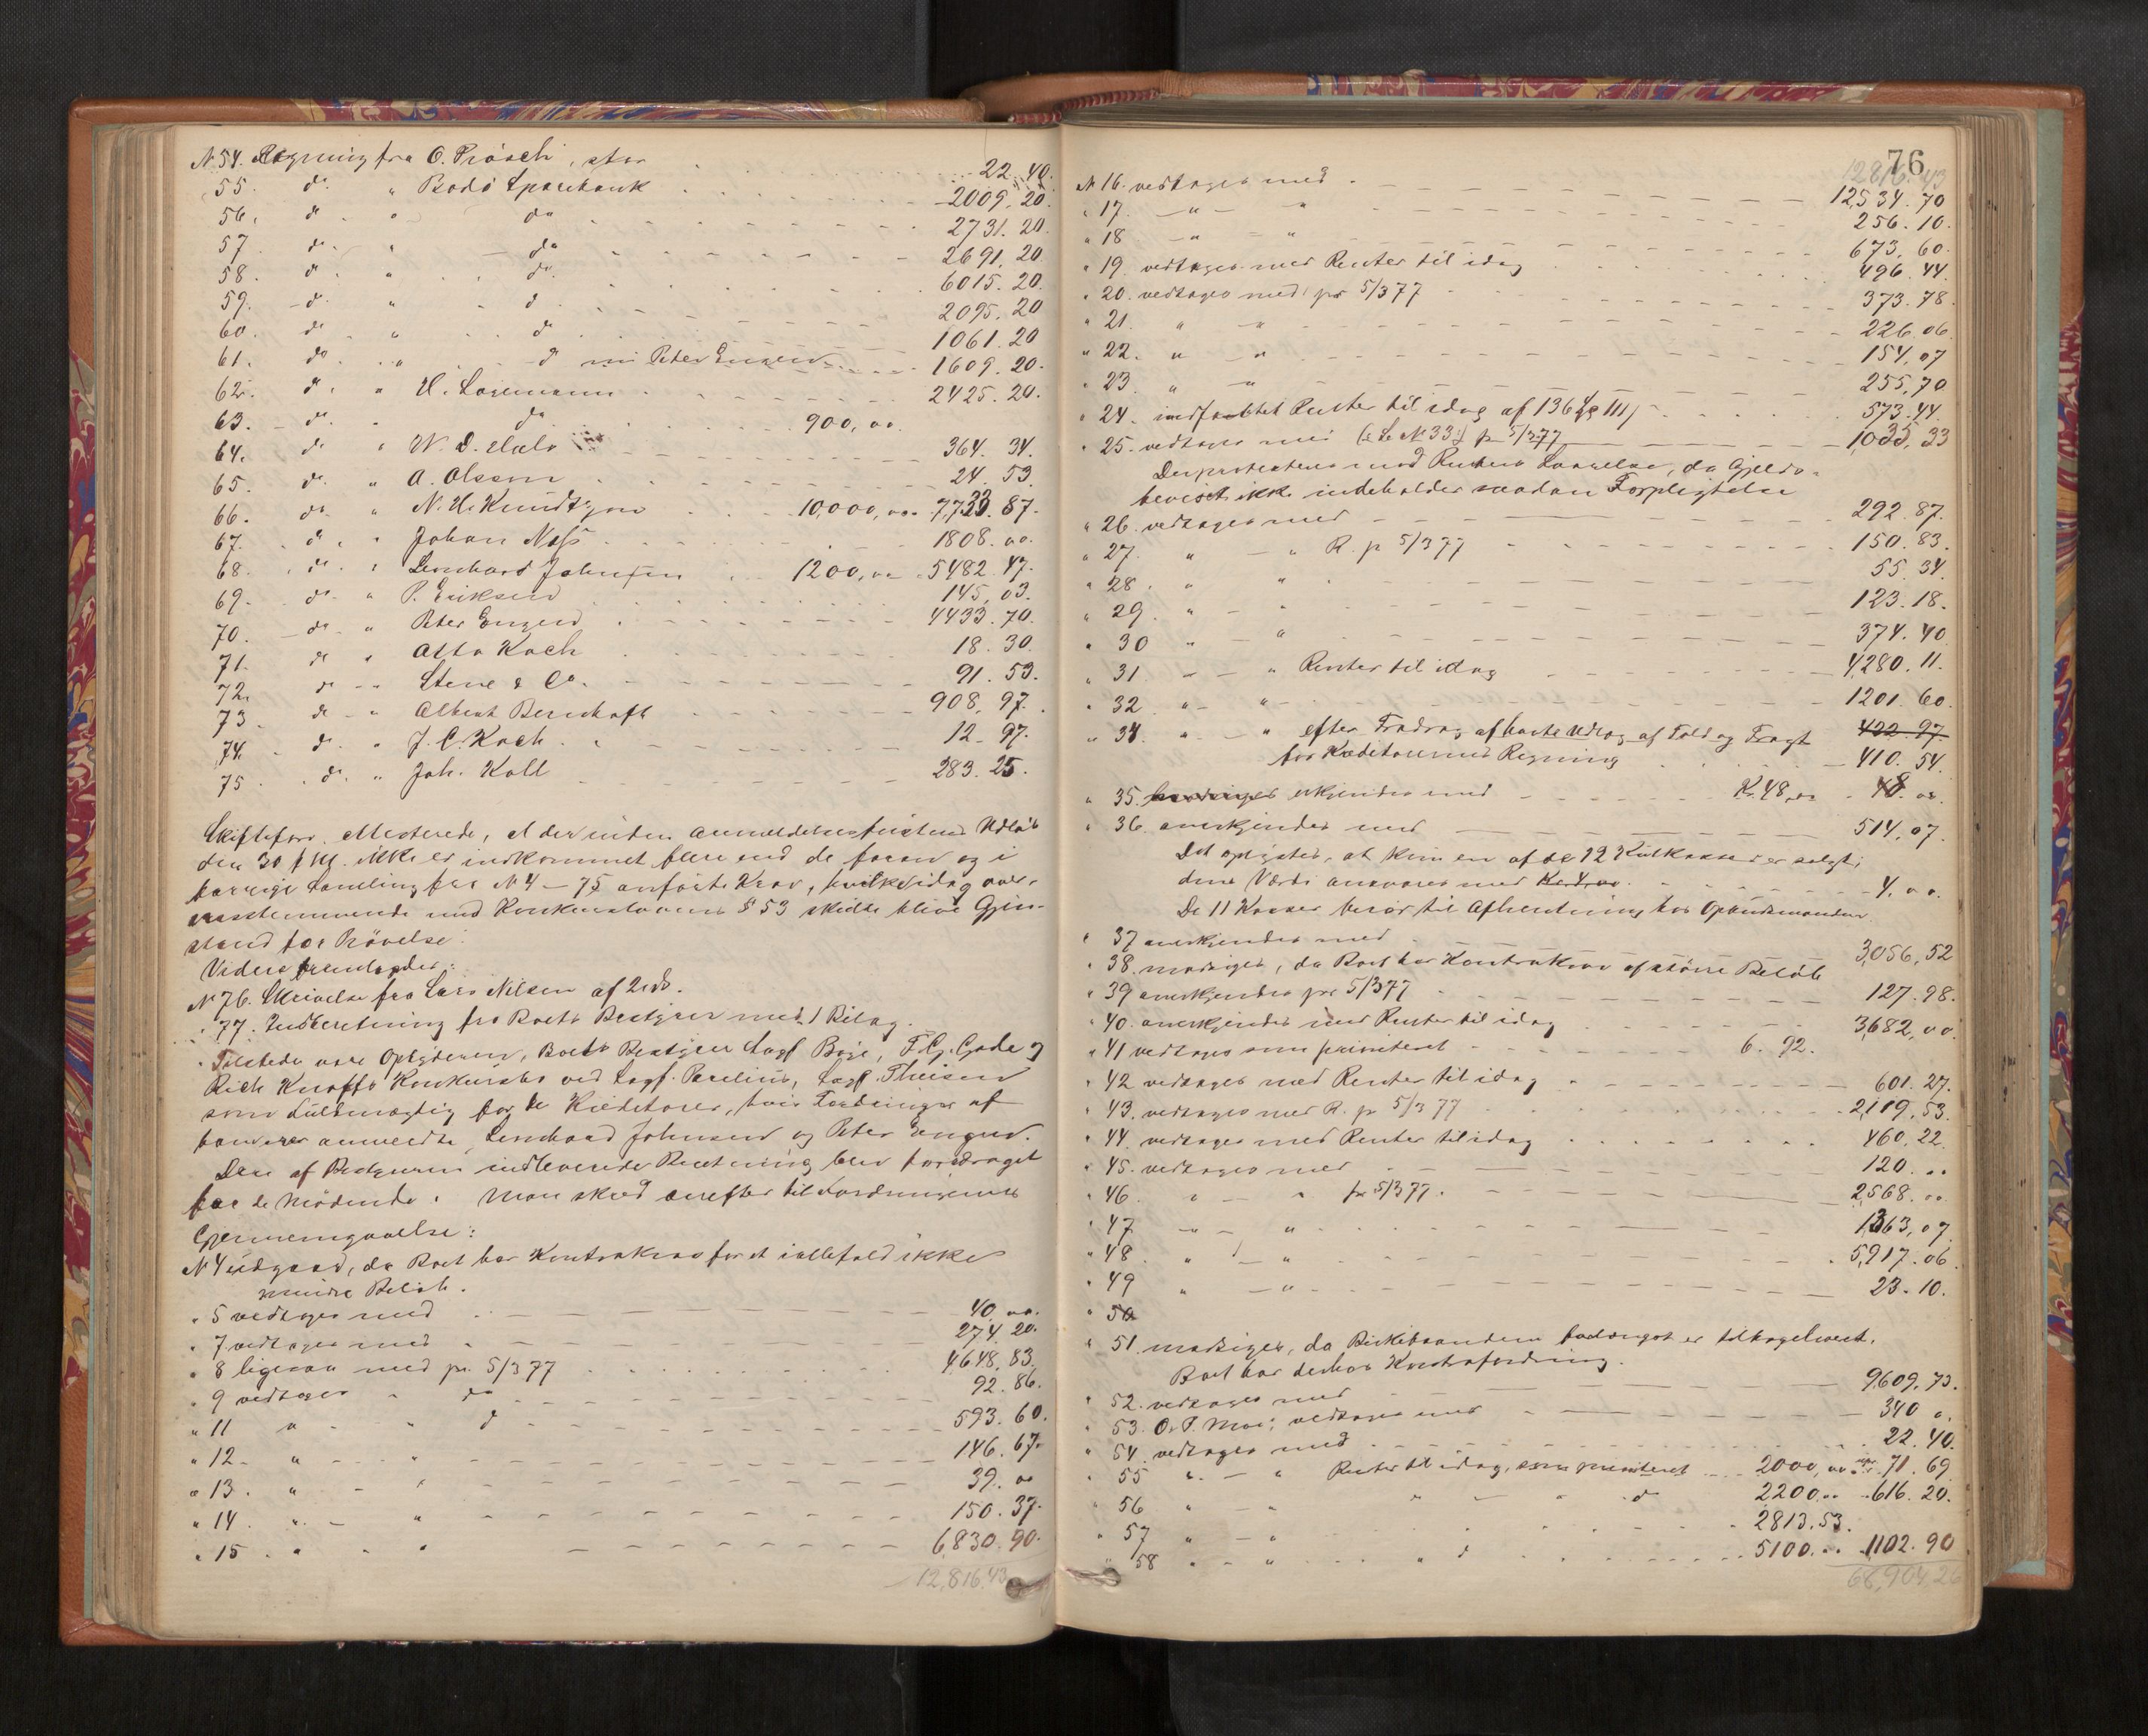 N 54. Regning fra C. Prösch, stor 22. 40.
55. do. " Bodö Sparebank 2009. 20.
56. do " do 2731. 20.
57 do. " do 2691. 20
58. do. " do. 6015. 20.
59. do. " do 2095. 20
60. do. " do 1061. 20
61. do. " do Peter Engen 1609. 20.
62. do. " H. Losemann 2425. 20.
63. do. " do 900, oo
64. do " W. D. 364. 34.
65. do. " A. Olssen 24. 53.
66. do " N. H. Knudtzon 10,000, oo 7,733. 87.
67. do. " Johan Næss 1808. oo.
68. do. " Lenhard Johnsen 1200, oo 5482. 47.
69. do. " P. Eriksen 145, 03.
70. do. " Peter Engen 4433. 70.
71. do " Otto Koch 18. 30.
72. do " Stene & Co. 91. 53.
73. do " Albert Bernhoft 908, 97.
74. do. " J. C. Koch 12. 97.
75. do. " Joh. Koll 283. 25.
Skifteforv. attesterede, at der inden Anmeldelsesfristens Udløb
den 30 f M. ikke er indkommet flere end de foran og i
forrige Samling fra N 4 – 75 anførte Krav, hvilke idag over-
ensstemmende med Konkurslovens § 53 skulde blive Gjen-
stand for Prövelse.
Videre fremlagdes:
N 76. Skrivelse fra Lars Nilsen af 2 ds.
" 77. Indberetning fra Boets Bestyrer med 1 Bilag.
Tilstede vare Opbyderen, Boets Bestyrer Sagf Boye, F. G. Gade og
Rich Knoffs Konkursbo ved Sagf. Parelius, Sagf. Theisen
som Fuldmægtig for de Kreditorer, hvis Fordringer af
ham er anmeldte, Lenhard Johnsen og Peter Engen.
Den af Bestyreren indleverede Beretning blev foredraget
for de Mödende. Man skred derefter til Fordringernes
Gjennemgaaelse:
N 4 udgaar, da Boet har Kontrakrav for et ialfald ikke
mindre Belöb.
" 5 vedtages med 40, oo.
" 7 vedtages med 274. 20.
" 8 ligesaa med pr. 5/3 77 4648, 83.
" 9 vedtages " do 92. 86.
" 11 " " d 593. 60.
" 12 " " 146. 67.
" 13. " " 39. oo
" 14. " " 150. 37.
" 15. " " 6,830. 90.
12,816. 43
76
12816. 43
N 16. vedtages med 12,534. 70
" 17. " " 256. 10.
" 18 " " 673, 60.
" 19. vedtages med Renter til idag 496. 44.
" 20. vedtages med pr 5/3 77 373. 78.
" 21. " " 226. 06
" 22. " " 154, 07
" 23. " " 255, 70
" 24. Renter til idag af 573. 44.
" 25. vedtages med (se N 33) pr 5/3 77 1,035, 33
Der protesteres mod Rentens, da Gjelds-
beviset ikke indeholder saadan Forpligtelse
" 26. vedtages med 292. 87.
" 27. " " R. pr 5/3 77 150. 83.
" 28. " " 55. 34.
" 29. " " 123. 18.
" 30 " " 374. 40
" 31. " " Renter til idag 4,280. 11.
" 32 " " 1201. 60.
" 34. " " efter Fradrag af Udlæg af Told og Fragt 422. 97.
for Kreditorernes Regning 410. 54.
" 35. erkjendes med Kr 48, oo 48. oo.
" 36. anerkjendes med 514, 07.
Det oplystes, at kun en af de 12 Kasser er solgt;
dens Værdi ansvares med Kr. 4, oo. 4. oo.
De 11 Kasser beror til Afhentning hos Opbudsmanden
" 37 anerkjendes med 3,056, 52
" 38. modsiges, da Boet har Kontrakrav af större Belöb
" 39 anerkjendes pr 5/3 77 127. 98.
" 40. anerkjendes med Renter til idag 3,682, oo.
" 41 vedtages som prioriteret 6. 92.
" 42 vedtages med Renter til idag 601. 27.
" 43. vedtages med R. pr 5/3 77 2,119, 53.
" 44. vedtages med Renter til idag 460, 22.
" 45. vedtages med 120. "
" 46. " " pr 5/3 77. 2,568. oo
" 47 " " 1,363, 07
" 48. " " 5,917. 06
" 49 " " 23. 10.
" 50
" 51. modsiges, da forlangst er tilbageleveret.
Boet har derhos Kontrafordring.
" 52. vedtages med 9,609, 73.
" 53. O. P. Moe; vedtages med 340 ".
" 54. vedtages med 22. 40.
" 55 " " Renter til idag, som prioriteret 2000, oo 71. 69
" 56 " " " " d 2200, oo 616. 20.
" 57 " " 2813. 53.
" 58 " " " d 5100. oo 1102. 90
68,904, 26